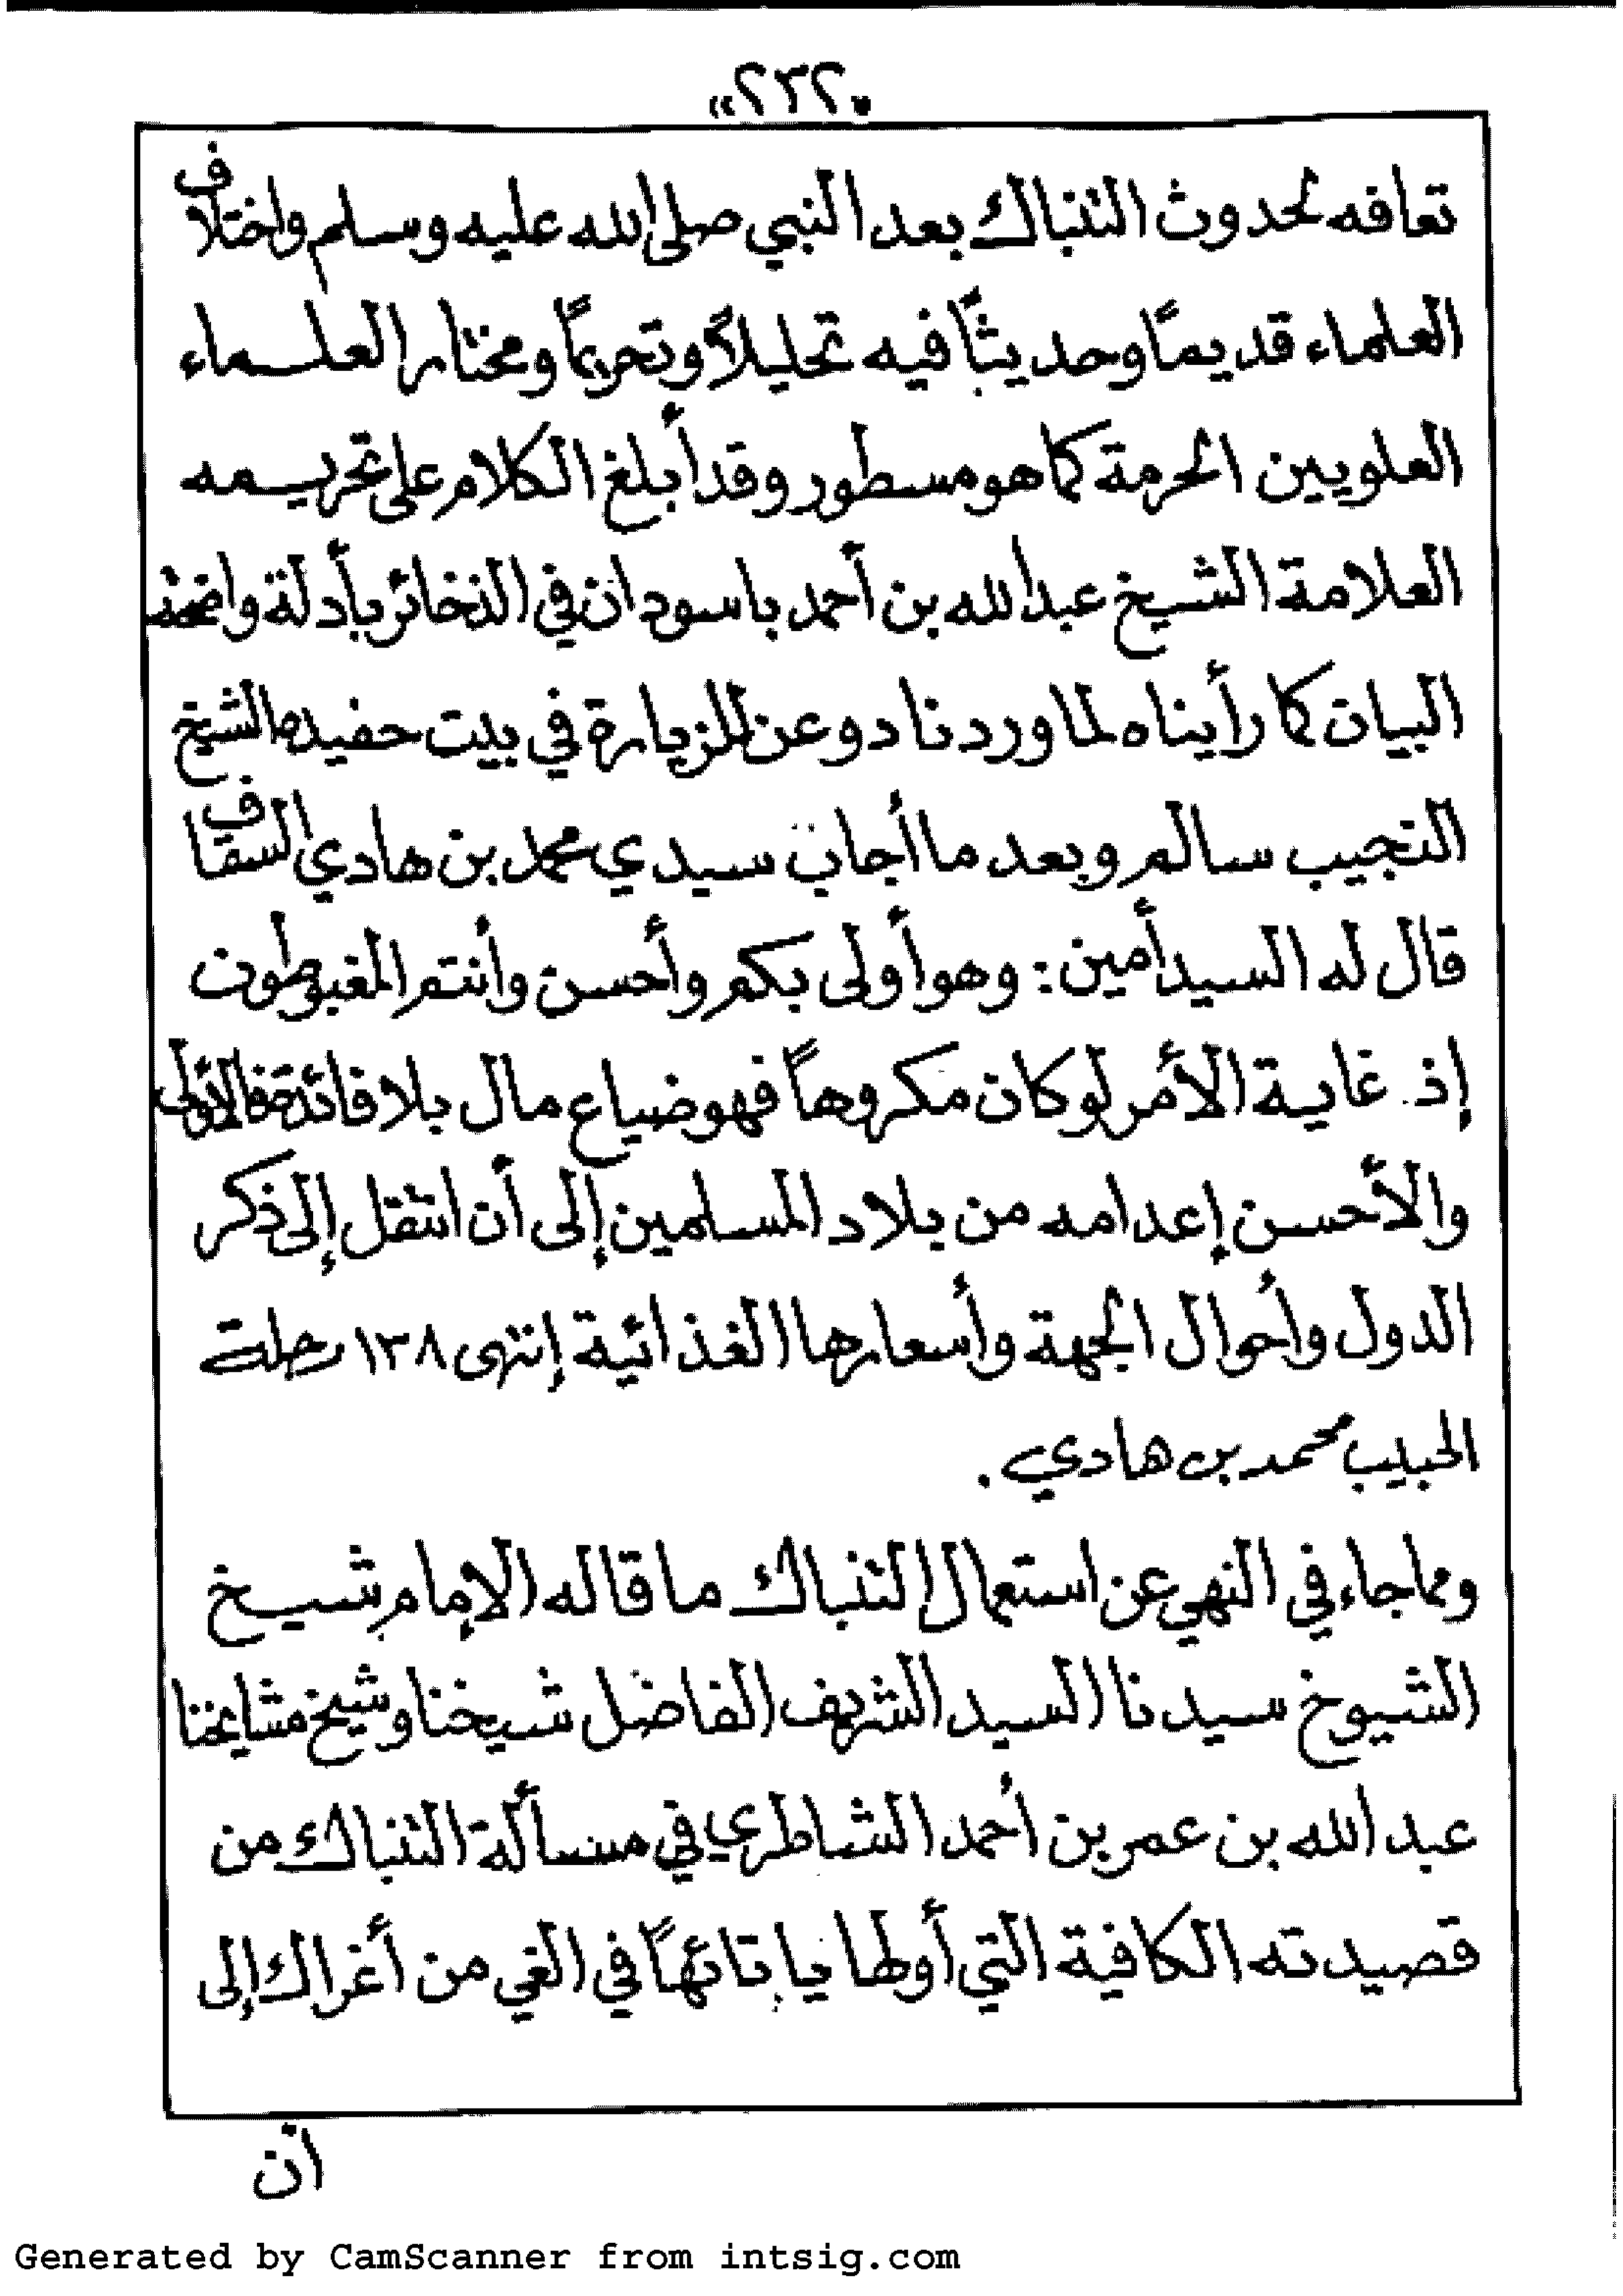 «٢٣٢»
تعافه لحدوث التنباك بعد النبي صلى الله عليه وسلم واختلاف
العلماء قديمًا وحديثًا فيه تحليلاً وتحريمًا ومختار العلماء
العلويين الحرمة كما هو مسطور وقد أبلغ الكلام على تحريمه
العلامة الشيخ عبدالله بن أحمد باسودان في الذخائر بأدلة واضحة
البيان كما رأيناه لما وردنا دوعن للزيارة في بيت حفيده الشيخ
النجيب سالم وبعد ما أجاب سيدي محمد بن هادي السقاف
قال له السيد أمين: وهو أولى بكم وأحسن وأنتم المغبوطون
إذ غاية الأمر لو كان مكروهاً فهو ضياع مال بلا فائدة فالأولى
والأحسن إعدامه من بلاد المسلمين إلى أن انتقل إلى ذكر
الدول وأحوال الجهة وأسعارها الغذائية إنتهى ١٣٨ رحلة
الحبيب محمد بن هادي .
ومما جاء في النهي عن استعمال التنباك ما قاله الإمام شيخ
الشيوخ سيدنا السيد الشريف الفاضل شيخنا وشيخ مشايخنا
عبد الله بن عمر بن أحمد الشاطري في مسألة التنباك من
قصيدته الكافية التي أولها يا تائهاً في الغي من أغراك إلى
أن
Generated by CamScanner from intsig.com